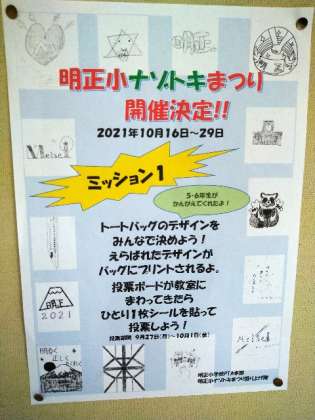 明正
明正小ナゾトキまつり
開催決定!!
2021年10月16日～29日
ミッション1
5・6年生が
かんがえてくれたよ!
トートバッグのデザインを
みんなで決めよう!
えらばれたデザインが
バッグにプリントされるよ。
投票ボードが教室に
まわってきたら
ひとり1枚シールを貼って
投票しよう!
投票期間 9月27日(月)～10月1日(金)
明正
2021
明るく
正しく
明正小学校PTA本部